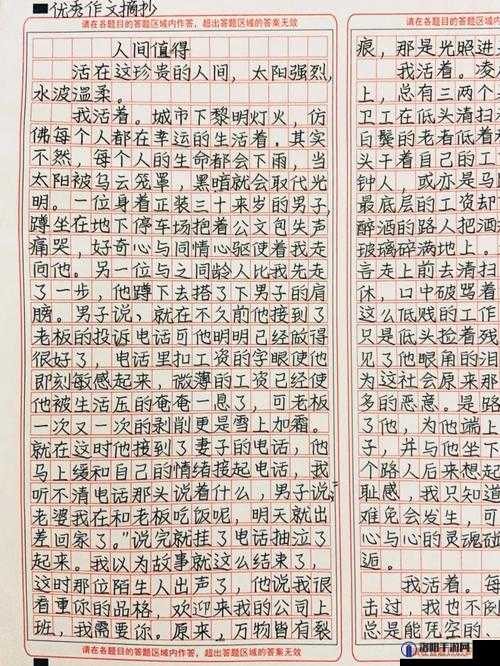 优秀作文摘抄
请在各题目的答题区域内作答，超出答题区域的答案无效
人间值得
活在这珍贵的人间，太阳强烈，
水波温柔。
我活着。城市下黎明灯火，仿
佛每个人都在幸运的生活着。其实
不然，每个人的生命都会下雨，当
太阳被乌云笼罩，黑暗就会取代光
明。一位身着正装三十来岁的男子，
蹲坐在地下停车场抱着公文包失声
痛哭，好奇心与同情心驱使着我走
向他。另一位与之同龄人比我先走
了一步，他蹲下去搭了下男子的肩
膀。男子说，就在不久前他接到了
老板的投诉电话可他明明已经做得
很好了，电话里扣工资的字眼使他
即刻敏感起来，微薄的工资已经使
他被生活压的奄奄一息了，可老板
一次又一次的剥削更是雪上加霜。
就在这时他接到了妻子的电话，他
马上缓和自己的情绪接起电话，我
听不清电话那头说着什么，男子说，
老婆我在和老板吃饭呢，明天就出
差回家了。”说完就挂了电话抽泣了
起来。我以为故事就这么结束了，
这时那位陌生人出声了，他说我很
看重你的品格，欢迎来我的公司上
班，我需要你。原来，万物皆有裂
请在各题目的答题区域内作答，超出答题区域的答案无效
请在各题目的答题区
痕，那是光照进
我活着。凌
上，总有三两个
卫工在低头清扫
白鬓的老者低着
头干着自己的工
钟人，或亦是马
最底层的工资却
醉酒的路人把酒
玻璃碎满地上。
言走上前去清扫
休，口中破骂着
这么低贱的工作
只是低头捡着残
见了他眼角的泪
为这社会原来那
多的恶意。是路
了他，为他端上
子，并与他坐下
个路人后来想起
耻感，我只知道
难免会发生，可
心与心的灵魂碰
逅。
我活着。每
击过，我也不
总是能凭空的、
请在各题目的答题区
洛阳手游网